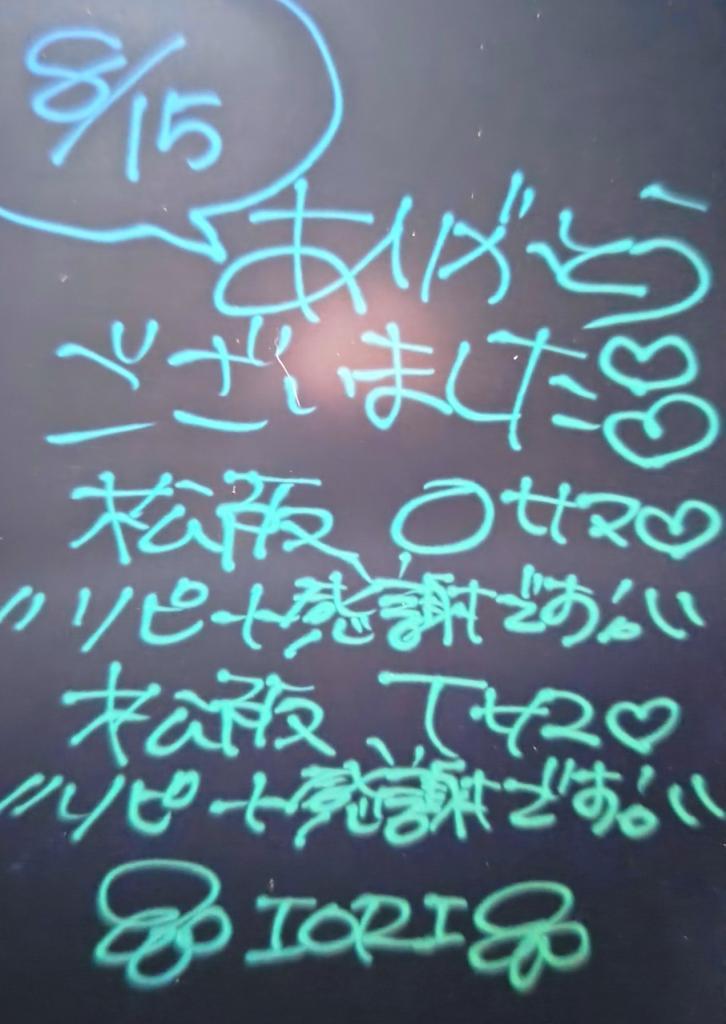 8/15
ありがとう
ございました♡♡
松阪 Oサマ♡
〃リピート感謝です!〃
松阪 Tサマ♡
〃リピート感謝です!〃
IORI